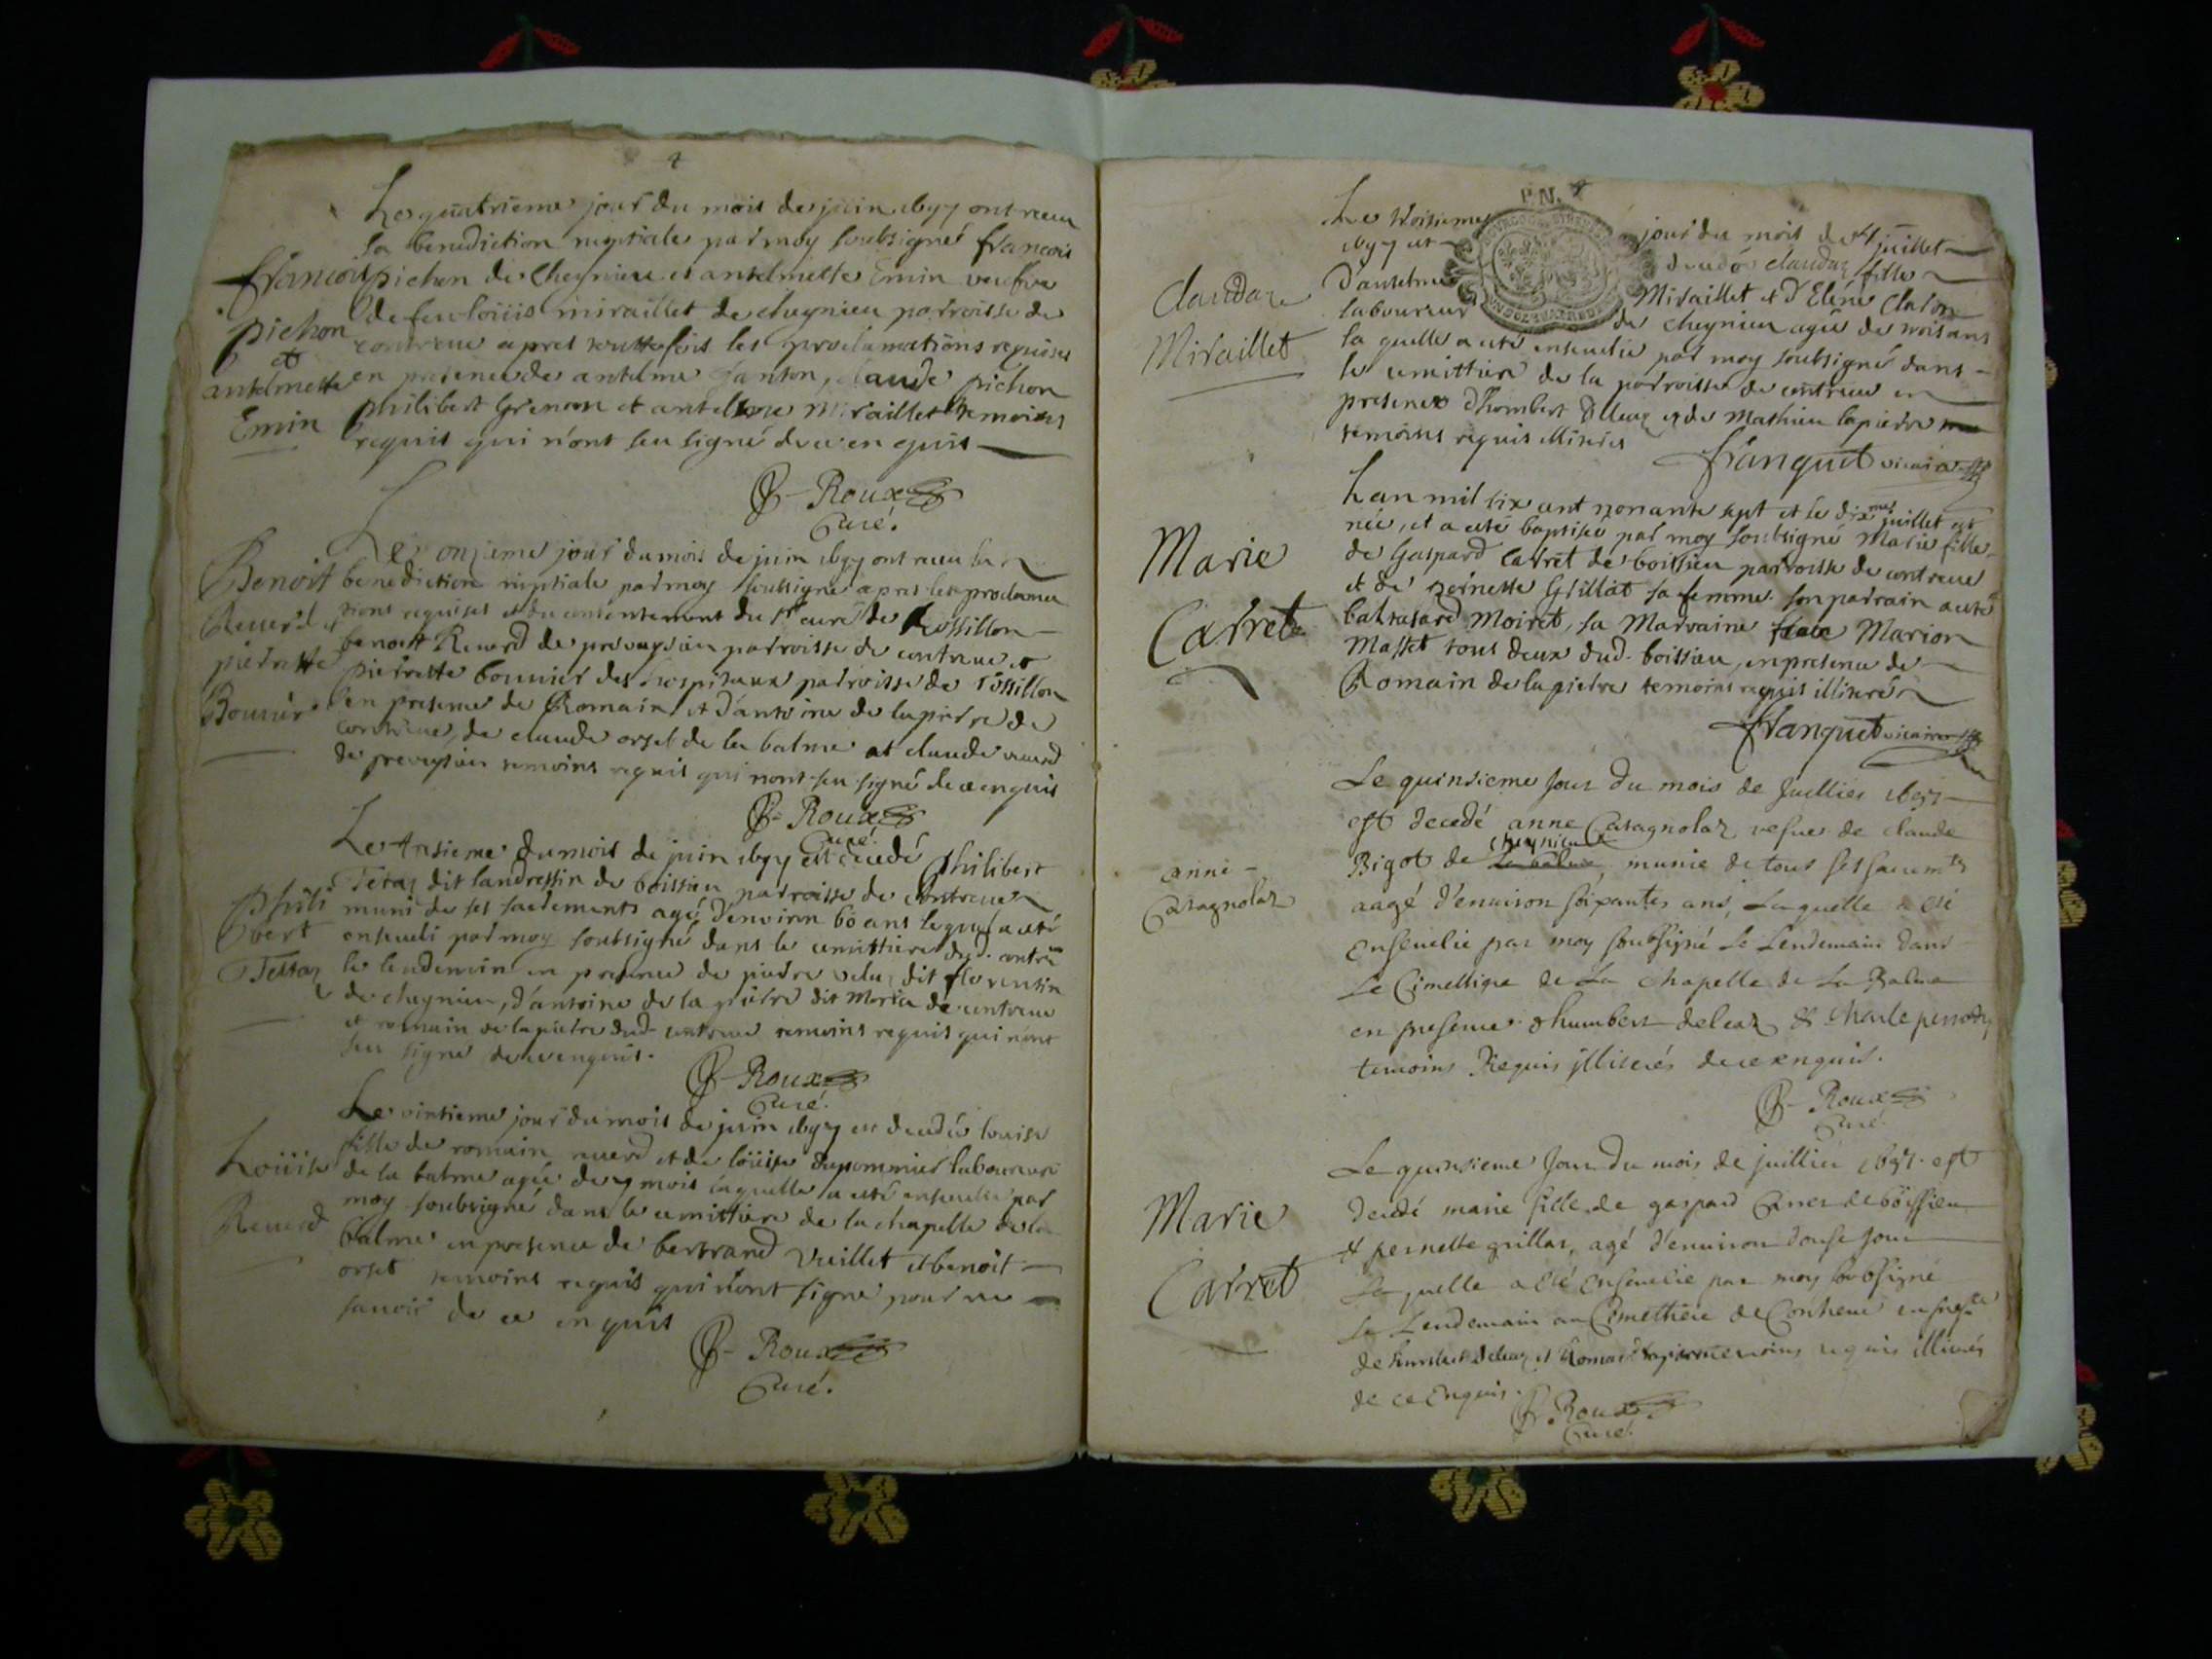 4
Le quatrieme jour du mois de juin 1697 ont receu
la benediction nuptiale par moy soubsigné francois
pichon de Cheynieu et antelmette Emin veufve
de feu loüis miraillet de cheynieu parroisse de
contreue apres touttefois les proclamations requises
en presence de antelme Janton, claude pichon
philibert Grenon et antelme Miraillet temoins
requis qui n'ont seu signé de ce enquis
francois
pichon
et
antelmette
Emin
Roux
Curé.
Le onzieme jour du mois de juin 1697 ont receu la
benediction nuptiale par moy soubsigné apres les proclama
tions requises et du consentement du Sr curé de Rossillon
benoist Reuerd de preveysieu parroisse de contreue et
pierrette bouuier des hospitaux parroisse de rossillon
en presence de Romain et d'antoine de lapierre de
contreue, de claude orset de la balme et claude reuerd
de preveysieu temoins requis qui n'ont seu signé de ce enquis
Benoist
Reuerd et
pierrette
Bouuier
Roux
Curé.
Le tresieme du mois de juin 1697 est decedé Philibert
Tetaz dit landressin de boissieu parroisse de Contreue
muni de ses sacrements agé d'environ 60 ans lequel a eté
enseveli par moy soubsigné dans le cemittiere dud. contreue
le lendemain en presence de pierre veluz dit florentin
de cheynieu, d'antoine de la pierre dit Moria de contreue
et romain de lapierre dud contreue temoins requis qui n'ont
seu signé de ce enquis.
Phili
bert
Tettaz
Roux
Curé.
Le vintieme jour du mois de juin 1697 est decedée louise
fille de romain reuerd et de loüise dupommier laboureurs
de la balme agée de 7 mois laquelle a eté ensevelie par
moy soubsigné dans le cemittiere de la chapelle de la
balme en presence de bertrand Vuillet et benoit
orset temoins requis qui n'ont signé pour ne
sauoir de ce enquis
Loüise
Reuerd
Roux
Curé.
4
Le troisieme jour du mois de juillet
1697 est decedé claudaz fille
d'antelme Miraillet et d'Elene Claton
laboureur de cheynieu agée de trois ans
la quelle a eté ensevelie par moy soubsigné dans
le cemittiere de la parroisse de contreue en
presence d'hombert Delleaz et de Mathieu lapierre
temoins requis illiterés
Claudaz
Miraillet
franquet vicaire
Lan mil six cent nonante sept et le dixme juillet est
née, et a eté baptisée par moy soubsigné Marie fille
de Gaspard Carret de boissieu parroisse de contreue
et de pernette Grillat sa femme son parrain a eté
baltasard Moiret, sa Marraine Marion
Masset tous deux dud. boissieu, en presence de
Romain de lapierre temoins requis illiterés
Marie
Carret
franquet vicaire
Le quinsieme Jour Du mois de Juillier 1697
est decedé anne Caragnolaz vefue de claude
cheynieu
Bigot de La balme, munie de tous ses sacremts
aagé d'enuiron soixantes ans, Laquelle a eté
Enseuelie par moy soubsigné Le Lendemain dans
Le Cimettiere de La Chapelle de La Balme
en presence d humbert deleaz & Charle perrody
temoins Requis illiterés de ce enquis.
anne
Caragnolaz
Roux
Curé
Le quinsieme Jour Du mois de juillier 1697. est
decedé marie fille de gaspard Carret de böissieu
et pernette grillat, agé d'enuiron douse jour
Laquelle a eté Enseuelie par moy soubsigné
Le Lendemain au Cimettiere de Contreue en presce
de humbert deleaz et Romain lapierre temoins requis illiterés
de ce Enquis.
Marie
Carret
Roux
Curé.